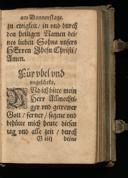 am Donnerstage.
zu ewigkeit / in und durch
den heiligen Namen dei-
nes lieben Sohns unsers
HErren Jhesu Christi /
Amen.
Für vbel und
ungelücke.
UNd ich bitte mein
Herr Allmechti-
ger und getrewer
Gott / ferner / segene und
behütte mich heute diesen
tag und alle zeit / durch
G iiij deine